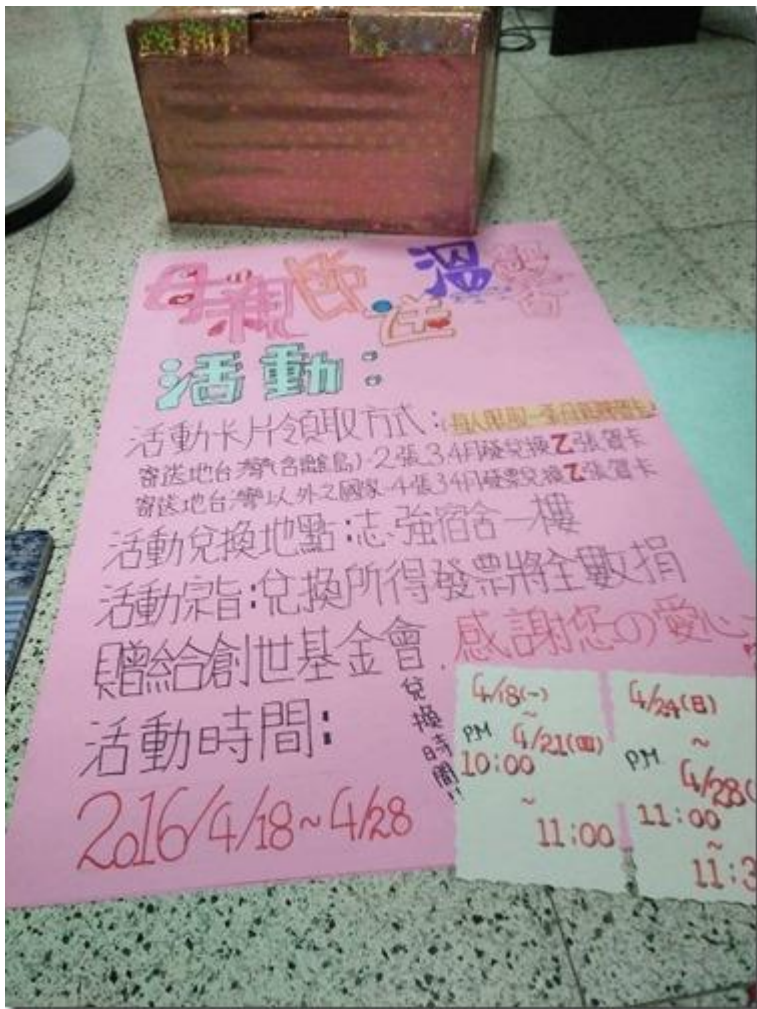 母親節送溫馨
活動：
活動卡片領取方式：(每人限取一張
寄送地台灣(含離島)-2張3.4月發票兌換乙張賀卡
寄送地台灣以外之國家-4張3.4月發票兌換乙張賀卡
活動兌換地點：志強宿舍一樓
活動宗旨：兌換所得發票將全數捐
贈給創世基金會.感謝您の愛心
活動時間：
2016/4/18~4/28
兌換時間!!
4/18(一)
~
4/21(四)
PM
10:00
~
11:00
4/24(日)
~
4/28(
PM
11:00
~
11:3